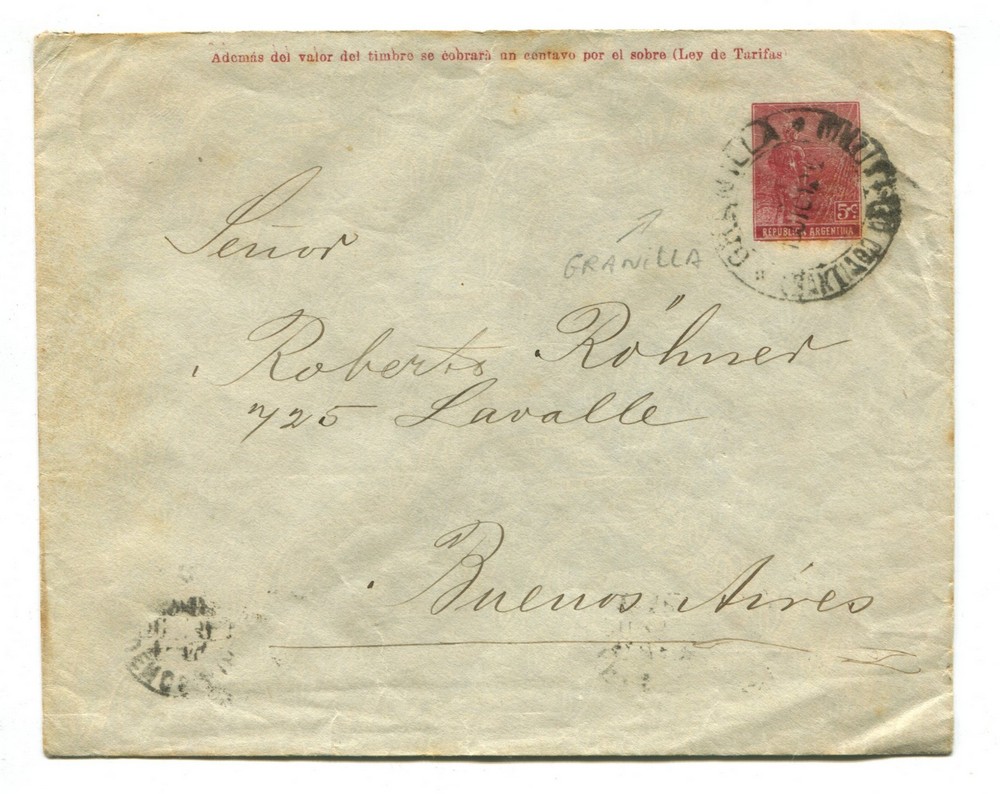 Además del valor del timbre se cobrará un centavo por el sobre (Ley de Tarifas)
GRANILLA
5c
REPUBLICA ARGENTINA
Señor
GRANILLA
Roberto Röhner
725 Lavalle
Buenos Aires